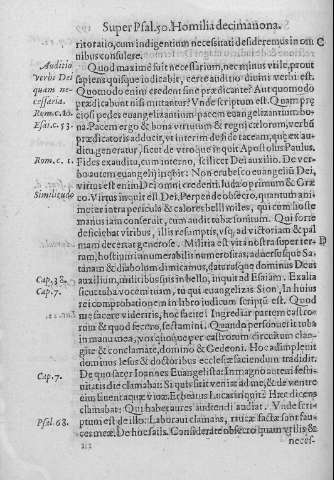 Super Psal. 50. Homilia decimanona.
tritoratio, cum indigentium necessitati desideremus in om
nibus consulere.
Auditio verbi Dei quam necessaria.
Quod maxime sit necessarium, nec minus vtile, prout
sapiens quisque iudicabit, certe auditio diuini verbi est.
Quomodo enim credent sine prædicante? Aut quomodo
prædicabunt nisi mittantur? Vnde scriptum est. Quam pre
Rom. c. 10.
ciosi pedes euangelizantium pacem euangelizantium bo-
Esai. c. 53.
na. Pacem ergo & bona vtrumum & regni cælorum, verbi
prædicatoris adducit, vt interim desideo taceam, quæ ex au
ditu generatur, sicut de vtroque inquit Apostolus Paulus.
Rom. c. 1.
Fides ex auditu, cum interno, scilicet Dei auxilio. De ver-
bo autem euangelij inquit: Non erubesco euangeliũ Dei,
virtus est enim Dei omni credenti. Iudæo primum & Græ
Similitudo
co. Virtus inquit est Dei. Perpende obsecro, quantum ani
meter intra periculo & calores belli miles, qui cum hoste
manus iam conseruit, cum audit tubæ sonitum. Qui forte
deficiebat viribus, illis resumptis, vsq; ad victoriam & pal
mam decertat generose. Militia est vita nostra super ter-
ram, hostium innumerabilis numerositas, aduersusque Sa-
tanam & diabolum dimicamus, datursque dominus Dei
Cap. 58.
auxilium, militibus suis in bello, inquit ad Esaiam. Exalta
Cap. 7.
sicut tuba vocem tuam, tu qui euangelizas Sion. In huius
rei comprobationem in libro iudicum scriptũ est. Quod
me facere videritis, hoc facite: Ingrediar partem castro-
rum & quod fecero, sectamini. Quando personuerit tuba
in manu mea, vos quoque per castrorum circuitum clan-
gite & conclamate, domino & Gedeoni. Hoc adimplenit
dominus Iesus & doctoribus ecclesiæ faciendum tradidit.
De quo sacer Ioannes Euangelista: In magno autem festi-
Cap. 7.
uitatis die clamabat: Si quis sitit veniat ad me, & de ventre
eius fluent aquæ viuæ. Et beatus Lucas inquit: Hæc dicens
clamabat: Qui habet aures audiendi audiat. Vnde scri-
Psal. 68.
ptum est de illo: Laboraui clamans, raucæ factæ sunt fau-
ces meæ. De hoc satis. Considerate obsecro quam vtilis &
neces-